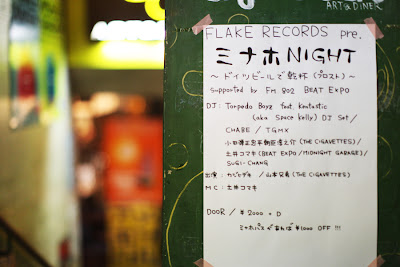 ART & DINER
FLAKE RECORDS pre.
ミナホNIGHT
〜ドイツビールで乾杯(プロスト)〜
supported by FM 802 BEAT EXPO
DJ: Torpedo Boyz feat. Kentastic
(aka Space Kelly) DJ Set/
CHABE / TGMX
小田淳之介(THE CIGAVETTES)/
土井コマキ(BEAT EXPO/MIDNIGHT GARAGE)/
SUGI-CHANG
出演: カジヒデキ / 山本兄弟(THE CIGAVETTES)
MC: 土井コマキ
DOOR / ¥2000 + D
ミナホパスがあれば¥1000 OFF !!!